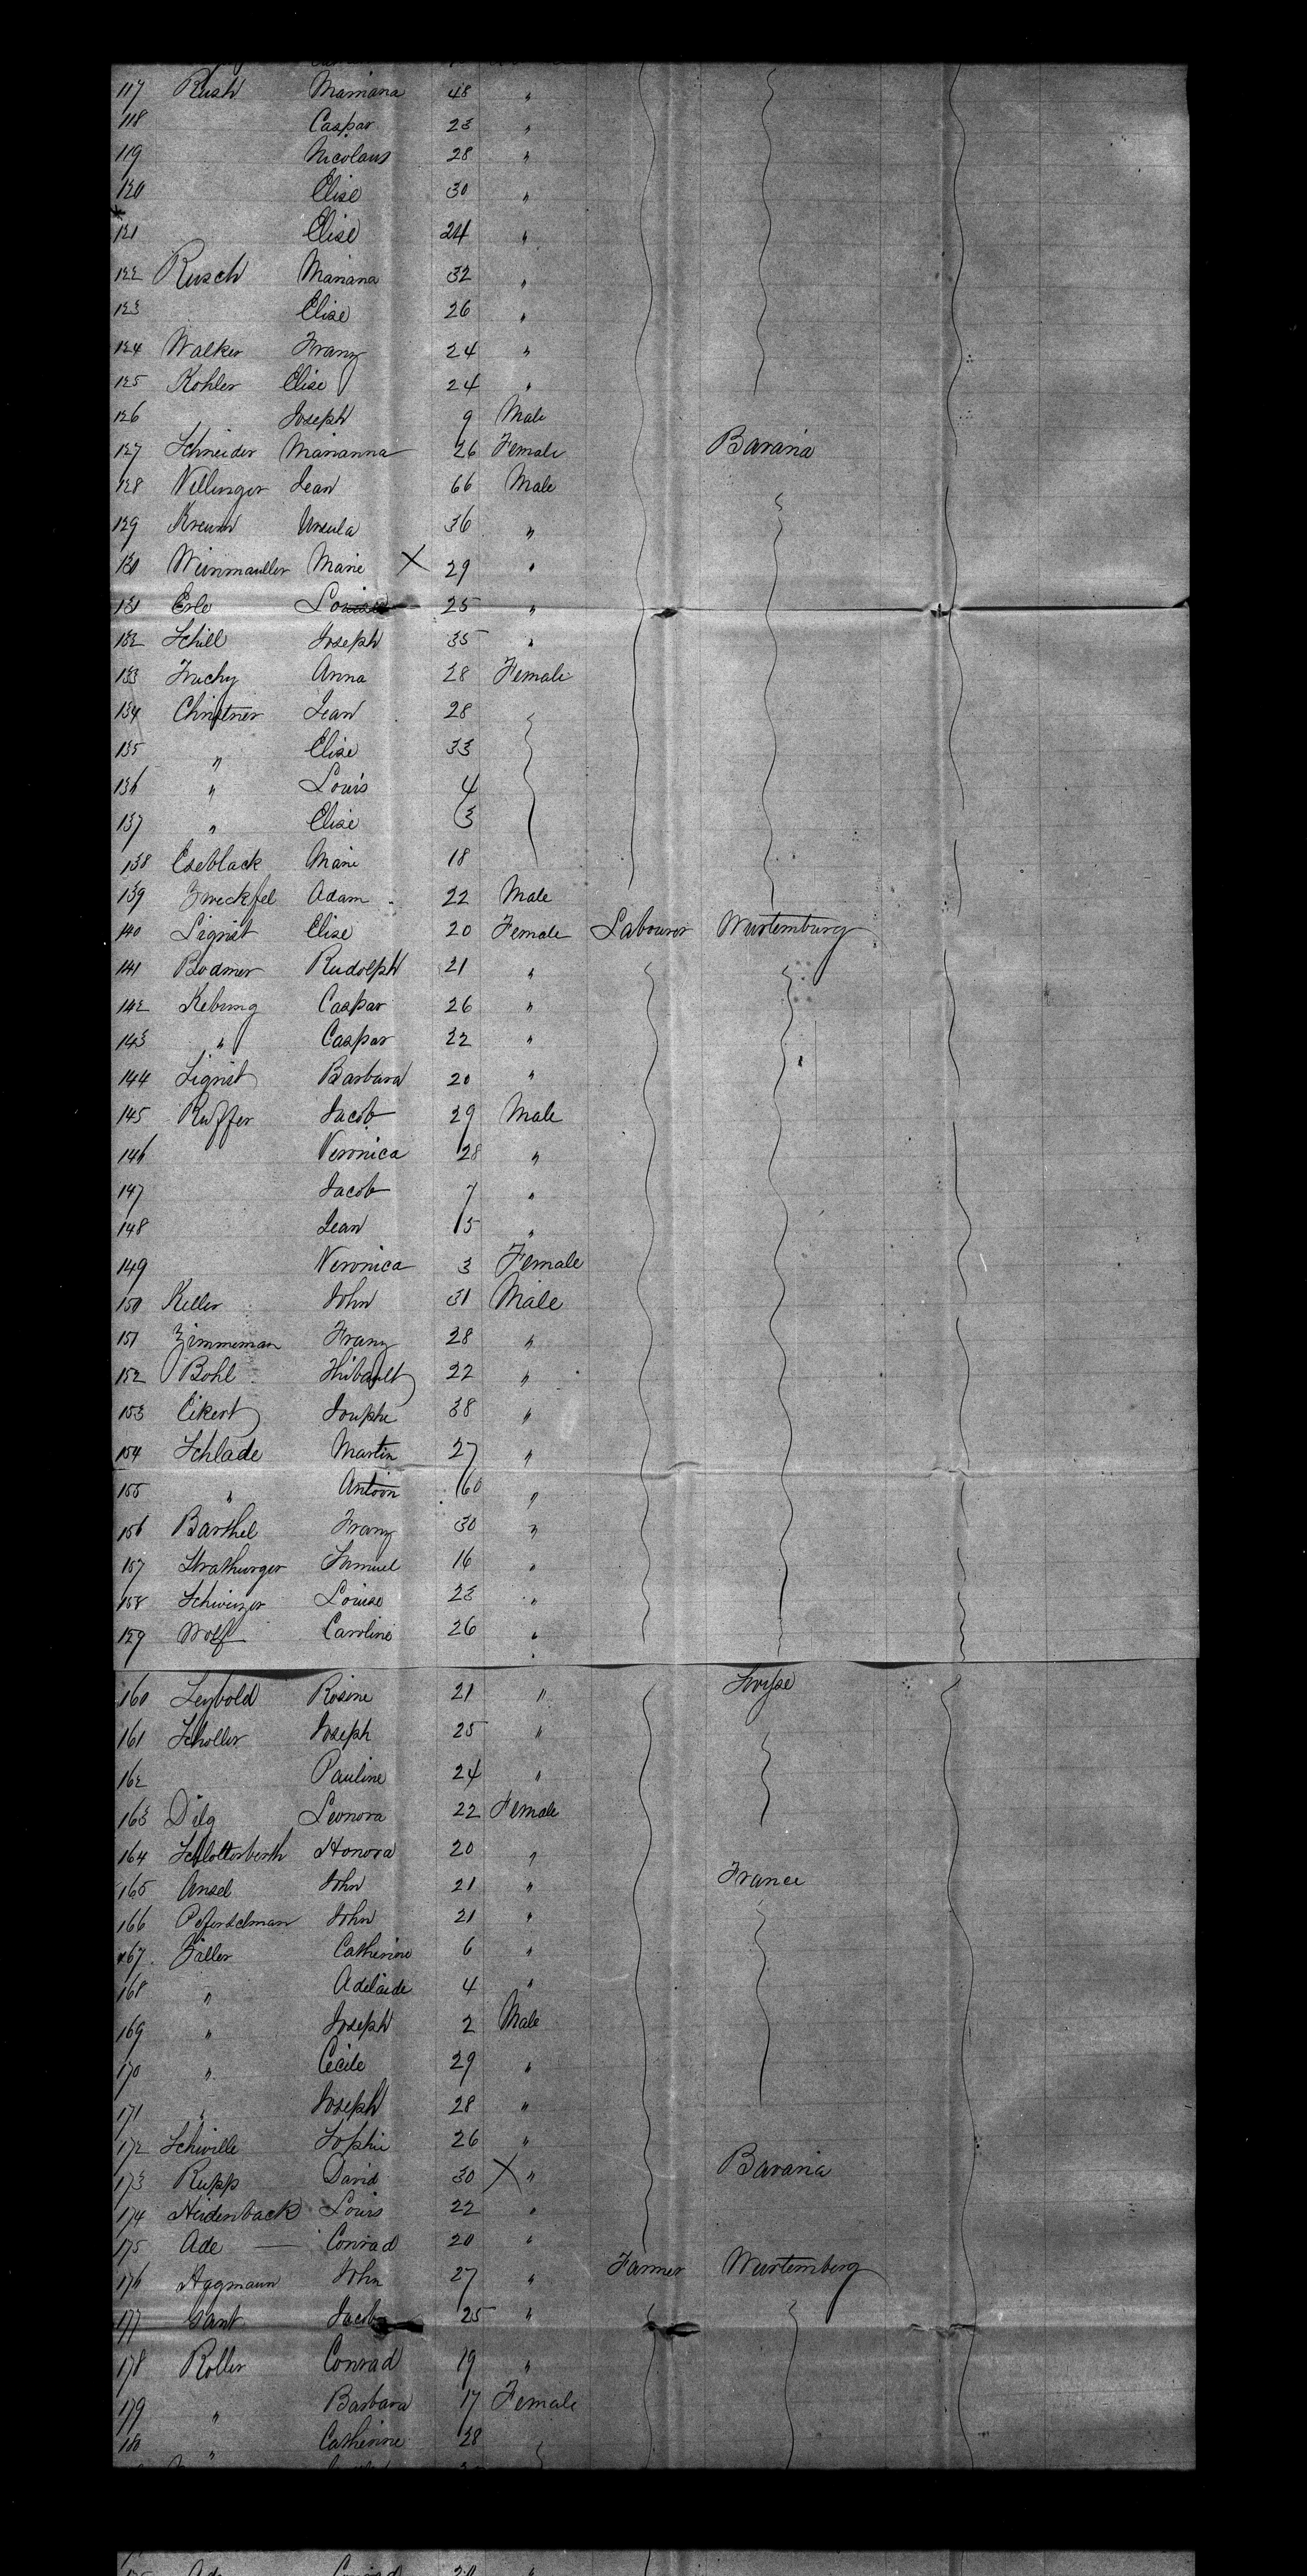 117 Rush Mariana 48 "
118 Caspar 23 "
119 Nicolaus 28 "
120 Elise 30 "
121 Elise 24 "
122 Rusch Mariana 32 "
123 Elise 26 "
124 Walker Franz 24 "
125 Kohler Elise 24 "
126 Joseph 9 Male
127 Schneider Marianna 26 Female Bavaria
128 Vellinger Jean 66 Male
129 Ursula 36 "
130 Weinmauller Marie X 29 "
131 Erle 25 "
132 Schill Joseph 35 "
133 Anna 28 Female
134 Christner Jean 28
135 " Elise 33
136 " Louis 4
137 " Elise 3
138 Eseblack Marie 18
139 Adam 22 Male
140 Sigrist Elise 20 Female Labourer Wurtemburg
141 Bodmer Rudolph 21 "
142 Caspar 26 "
143 " Caspar 22 "
144 Sigrist Barbara 20 "
145 Ruffer Jacob 29 Male
146 Veronica 28 "
147 Jacob 7 "
148 Jean 5 "
149 Veronica 3 Female
150 Keller John 31 Male
151 Zimmeman Franz 28 "
152 Bohl Thibault 22 "
153 Eikert Josephe 38 "
154 Schlade Martin 27 "
155 " Antoin 60 "
156 Barthel Franz 30 "
157 Samuel 16 "
158 Louise 23 "
159 Wolf Caroline 26 "
160 Leybold Rosine 21 "
161 Scholler Joseph 25 "
162 Pauline 24 "
163 Dilg Leonora 22 Female
164 Honora 20 "
165 Ansel John 21 " France
166 John 21 "
167 Zaller Catherine 6 "
168 " Adelaide 4 "
169 " Joseph 2 Male
170 " Cecile 29 "
171 " Joseph 28 "
172 Schwille Sophie 26 "
173 Rupp David 30 X " Bavaria
174 Heidenback Louis 22 "
175 Ade — Conrad 20 "
176 Aggmann John 27 " Farmer Wurtemberg
177 Gant Jacob 25 "
178 Roller Conrad 19 "
179 " Barbara 17 Female
180 " Catherine 28